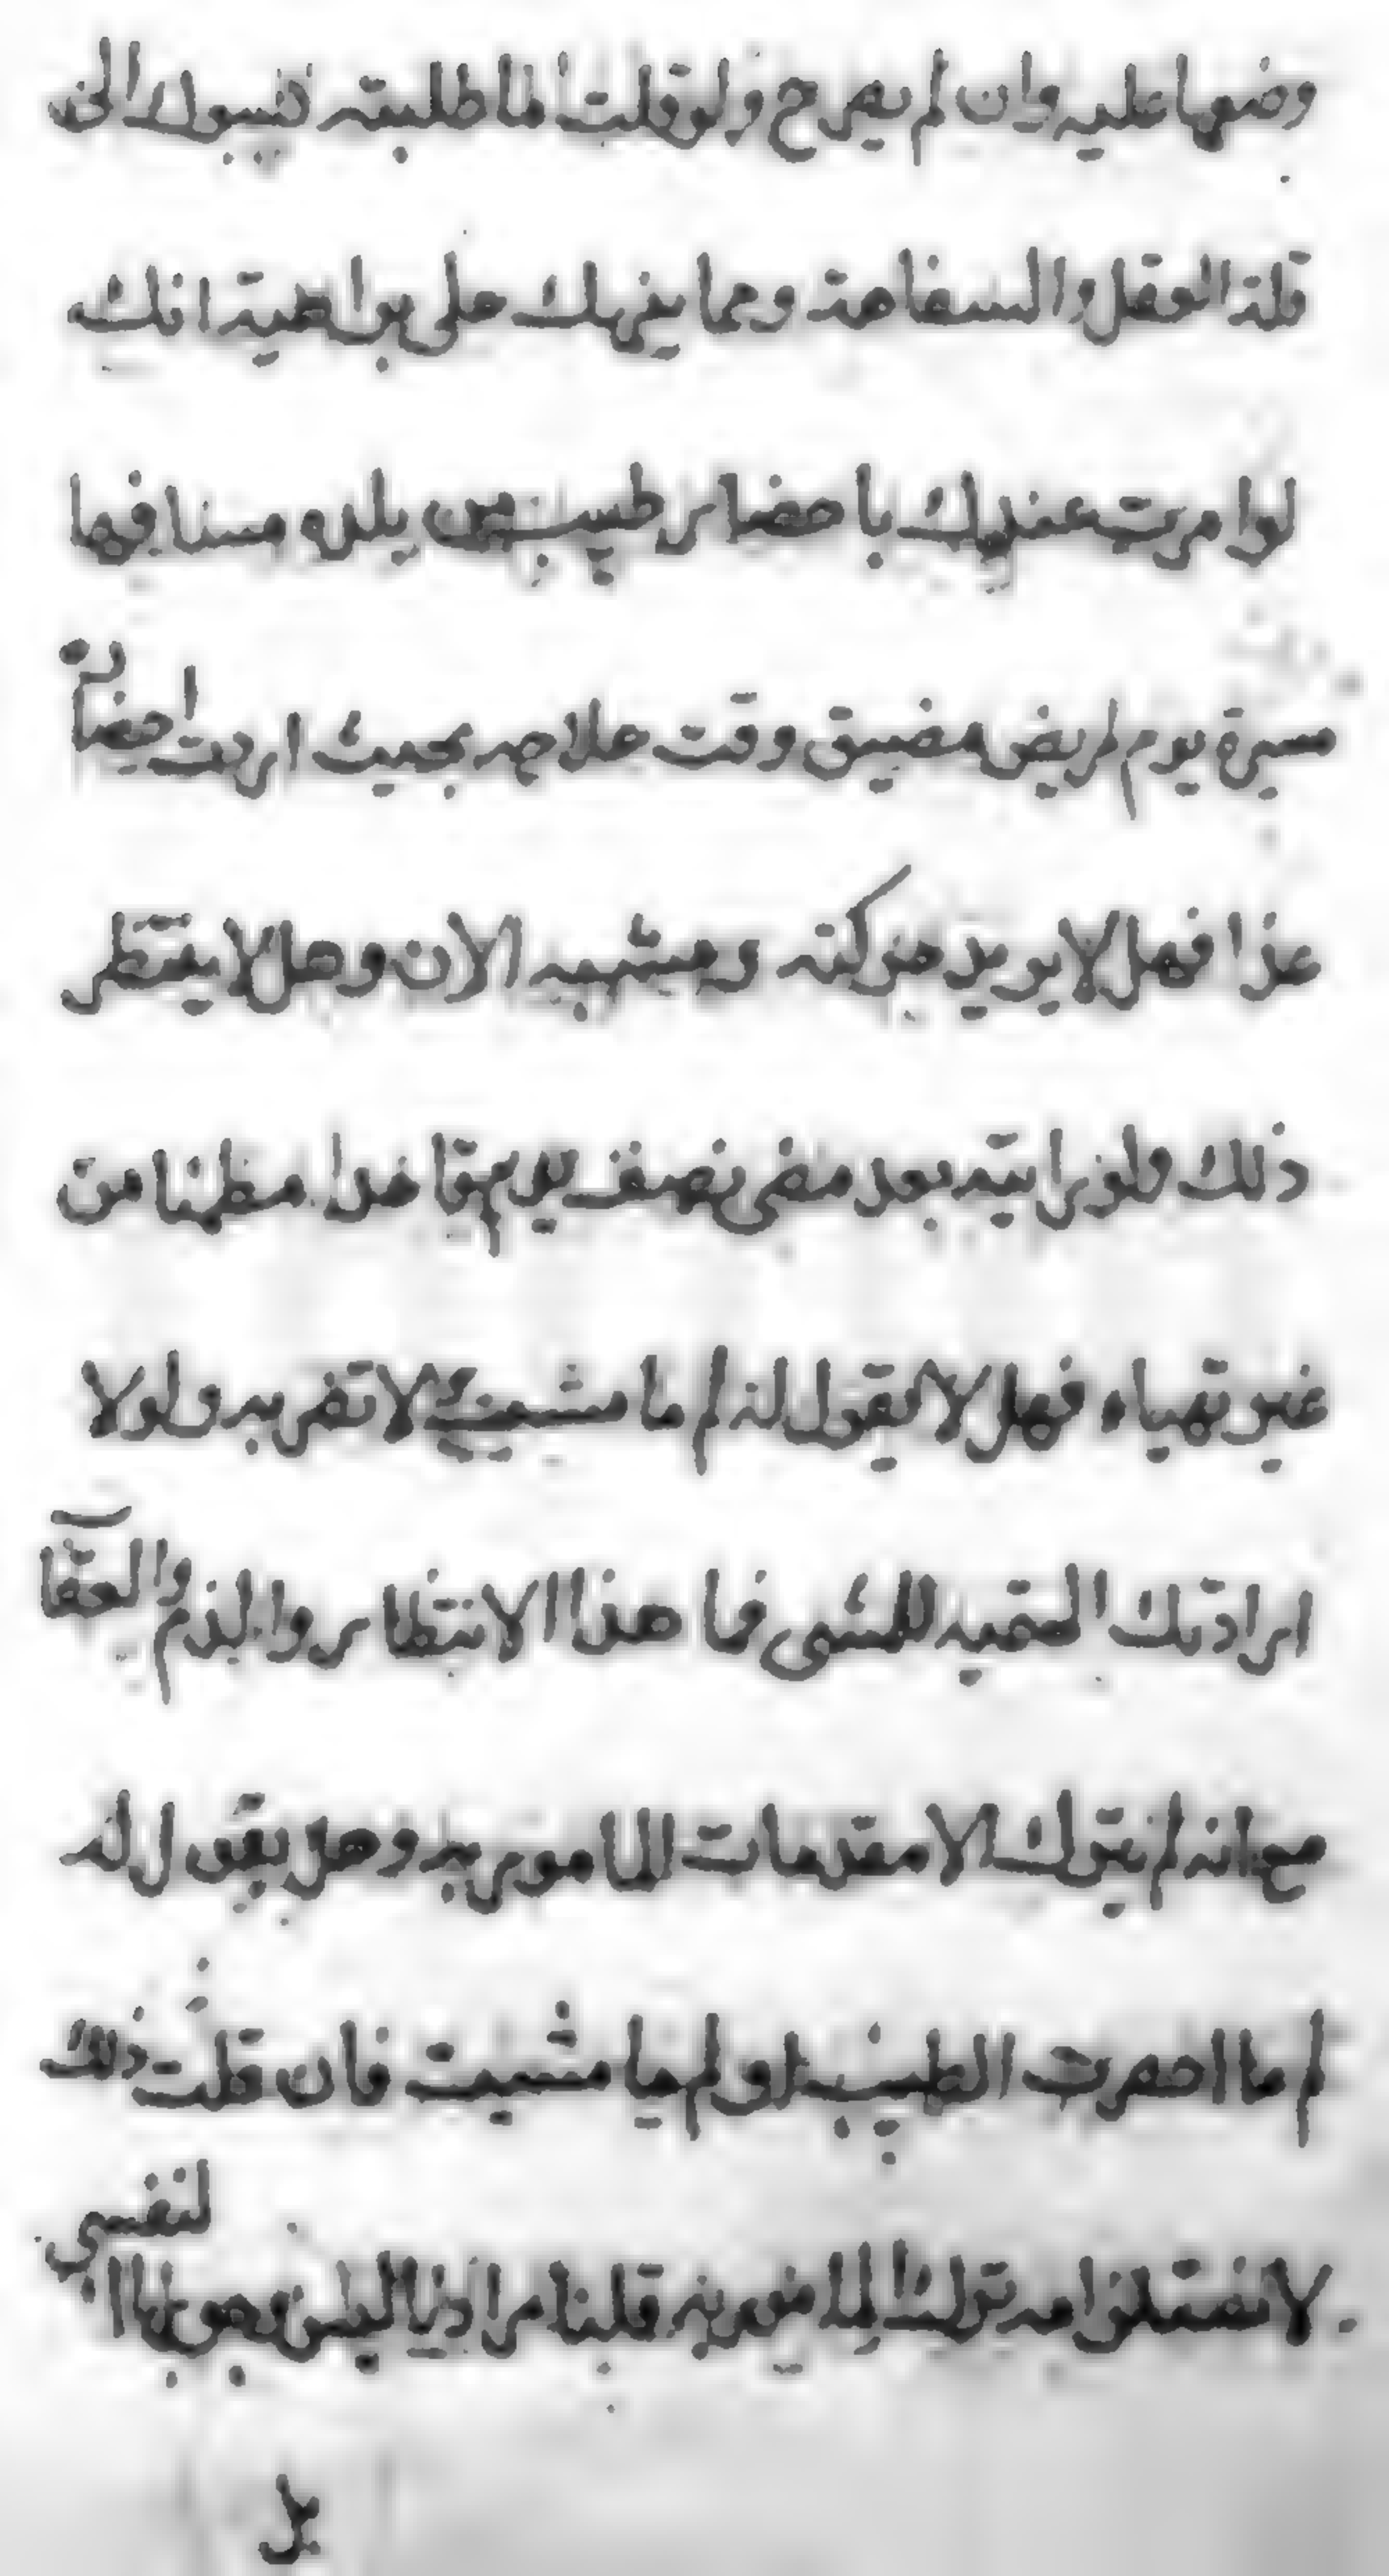 وضهما عليه وان لم يصرح ولو قلت ما طلبته نسبوك الى
قلة العقل والسفاهة ومما ينبهك على براهيته انك
لو امرت عندك باحضار طبيب من بلده مسافها
مسيرة يوم لمريض مضيق وقت علاجه بحيث اردت احضاره
غدا فهل لا يريد حركته ومشيه الان وهل لا ينتظر
ذلك ولو رايته بعد مضى نصف يوم قاعدا مطمئنا من
غير تهياه فهل لا تقول له لم ما مشيت لا تضربه ولولا
ارادتك الحتميه للمشى فما هذا الانتظار والذم والعقاب
مع انه لم يترك الا مقدمات المامور به وهل يقول له
لم ما احضرت الطبيب او لم ما مشيت فان قلت ذلك
لاستلزامه ترك المامور به قلنا مرادنا ليس وجوبها لنفسى
بل